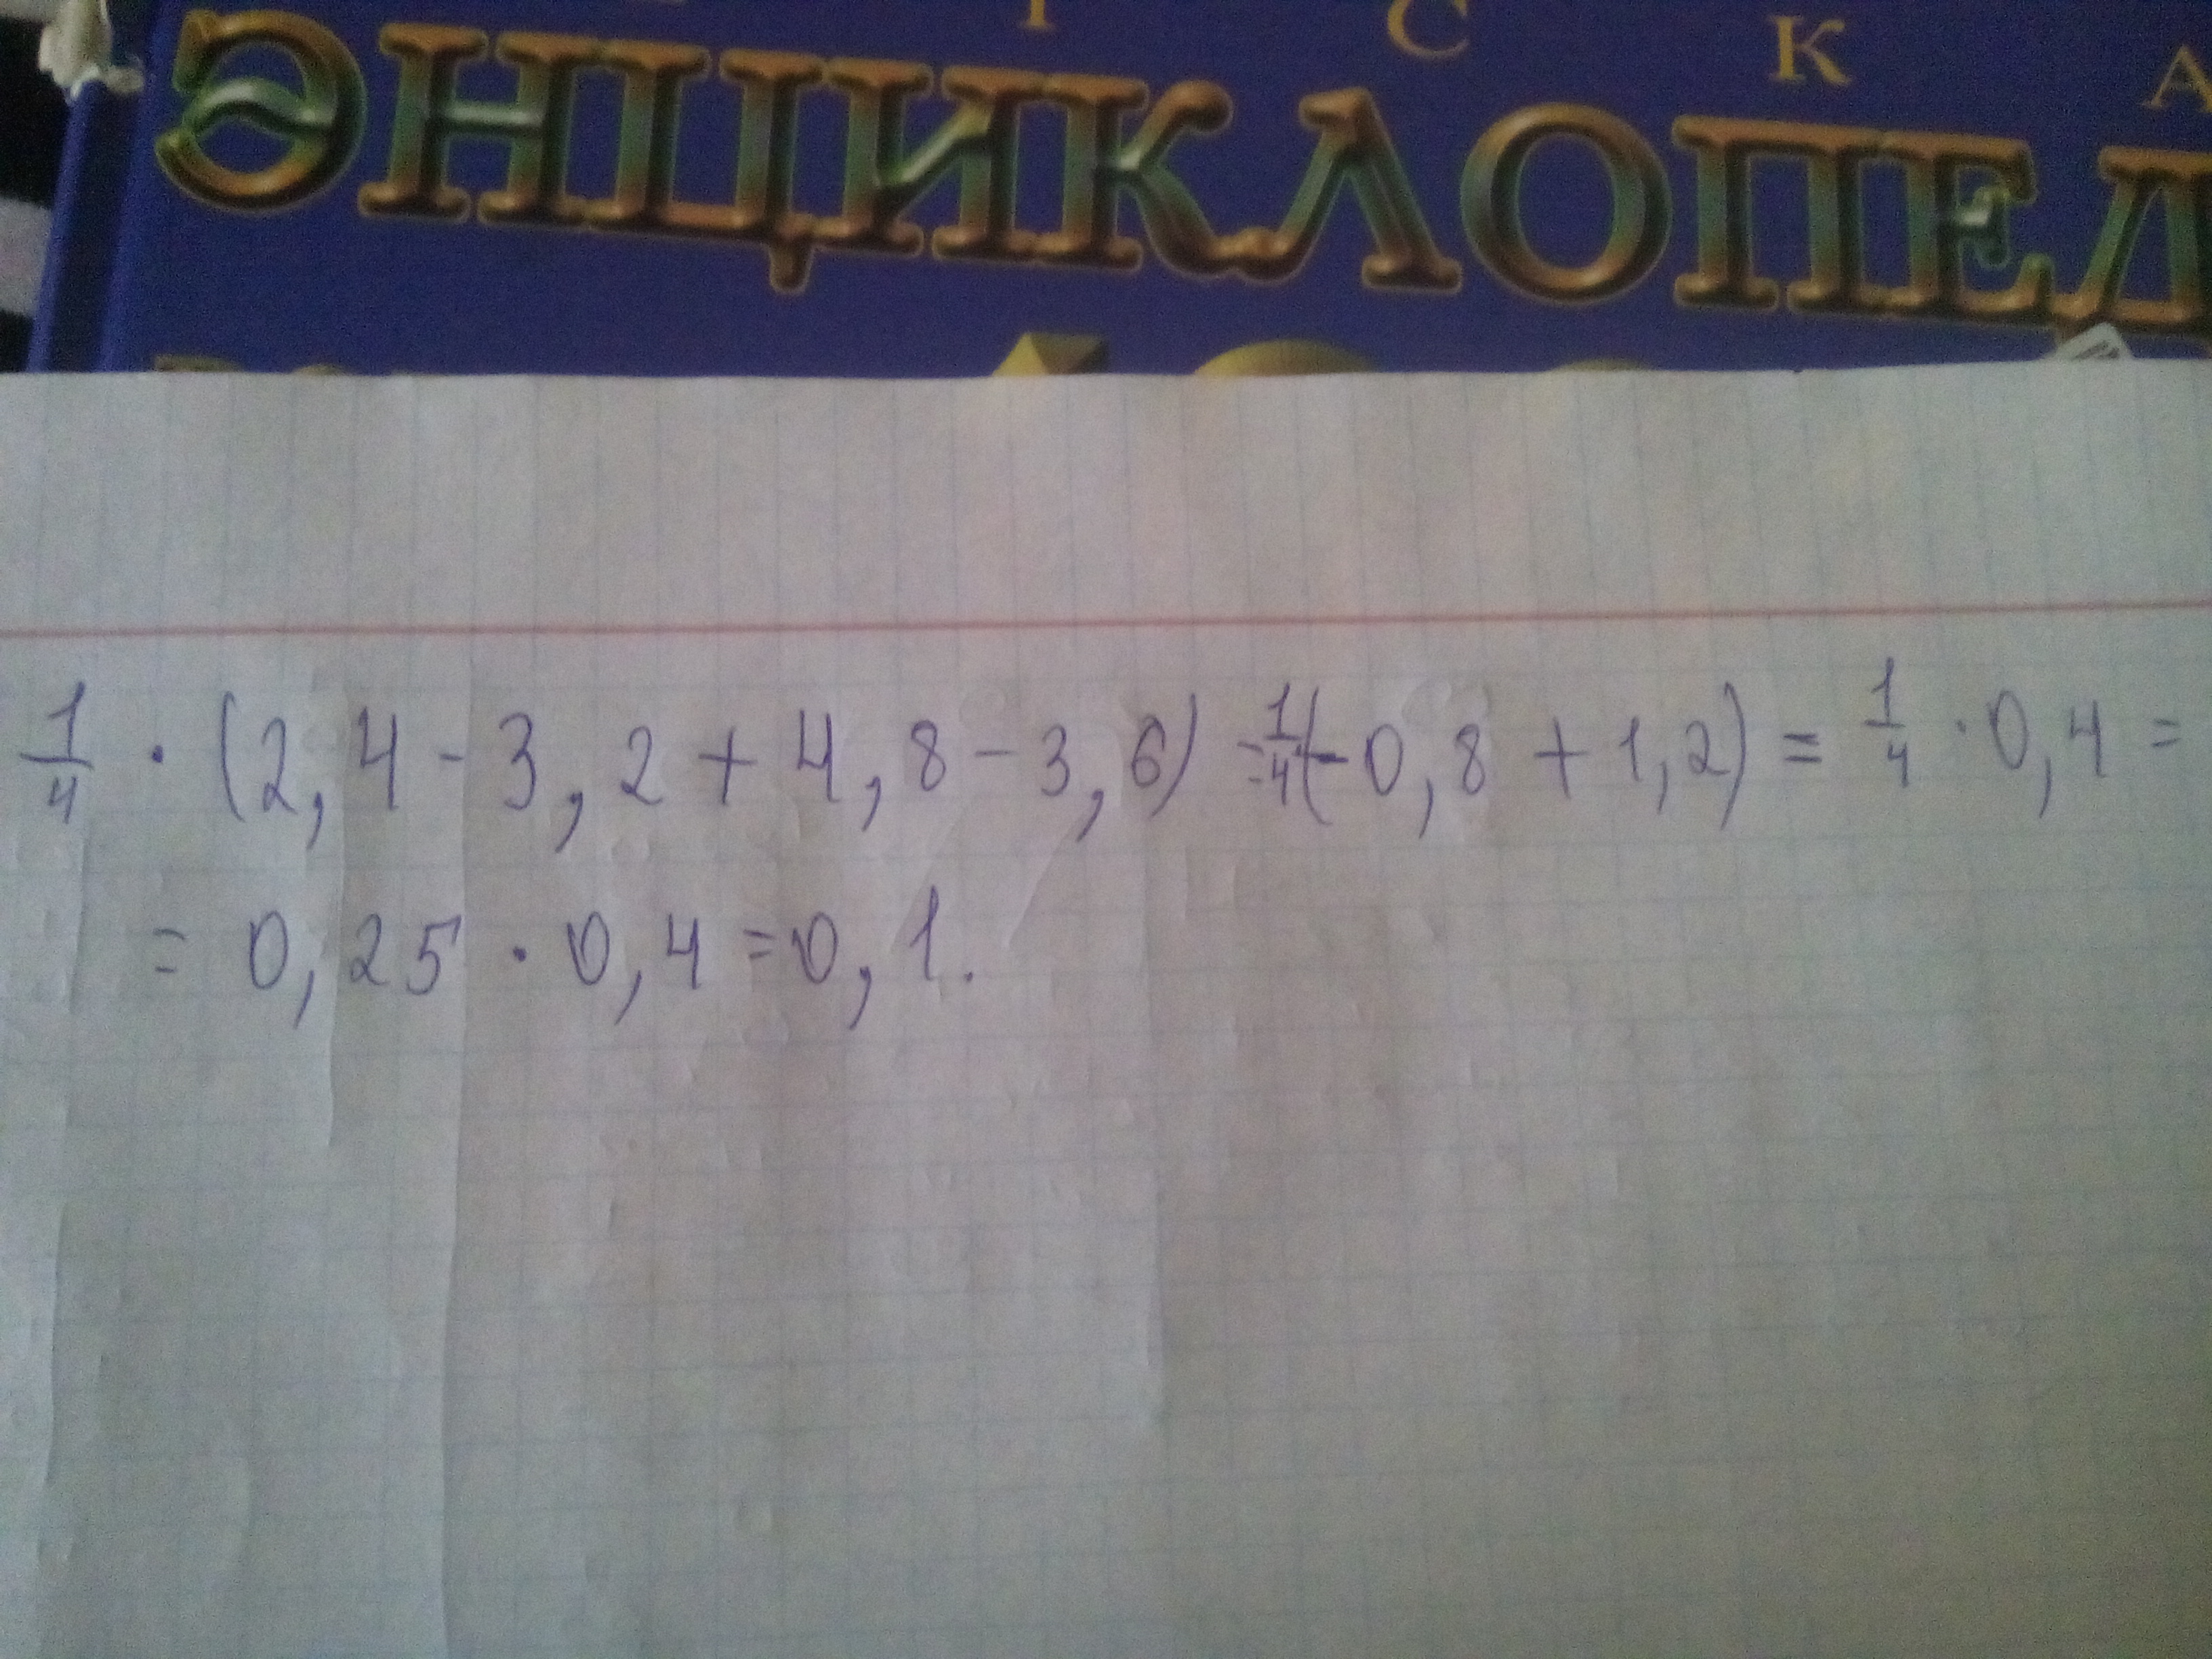 С К А
ЭНЦИКЛОПЕД
1/4 · (2,4 - 3,2 + 4,8 - 3,6) = 1/4(-0,8 + 1,2) = 1/4 · 0,4 =
= 0,25 · 0,4 = 0,1.